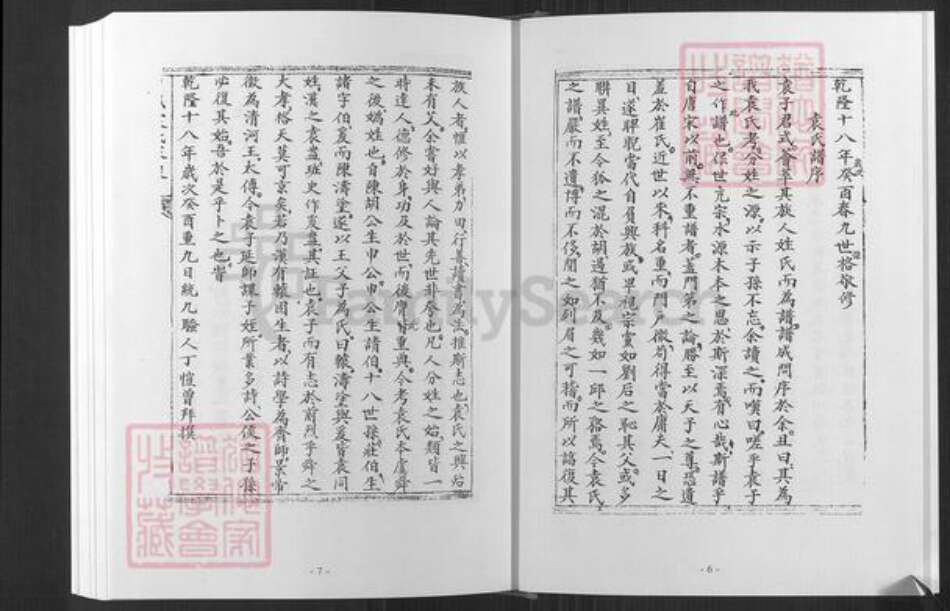 乾隆十八年癸酉春九世格敬修
袁氏譜序
袁子君式會萃其族人姓氏而為譜譜成問序於余且曰其為
我袁氏考分姓之源以示子孫不忘余讀之而嘆曰嗟乎袁子
之作譜也保世亢宗水源木本之思於斯深焉有心哉斯譜乎
自唐宋以前無不重譜者蓋門第之論勝至以天子之尊
蓋於崔氏近世以來科名重而門戶微苟得當於庸夫一日之
目遂睥睨當代自負興族或卑視宗黨如劉后之恥其父或多
聯異姓至令狐之混於胡邊猶不及幾如一邱之貉焉今袁氏
之譜嚴而不遺博而不侈閱之如列眉之可稽而所以詒復其
族人者惟以孝弟力田行善讀書為法推斯志也袁氏之興殆
未有艾余嘗好與人論其先世非夸也凡人分姓之始類皆一
時達人德修於身功及於世而後膺重典今考袁氏本虞舜
之後媯姓也自陳胡公生申公申公生諸伯十八世孫莊伯生
諸字伯爰而陳濤塗遂以王父字為氏曰轅濤塗與爰皆袁同
姓漢之袁盎班史作爰盎其証也袁子而有志於前烈乎舜之
大孝格天莫可京矣若乃漢有轅固生者以詩學為齊師景帝
徵為清河王太傅今袁子延師課子姪所業多詩公侯之子孫
必復其始吾於是乎卜之也
乾隆十八年歲次癸酉重九日統九驗人丁愷曾拜撰
- 6 -
- 7 -
FamilySearch